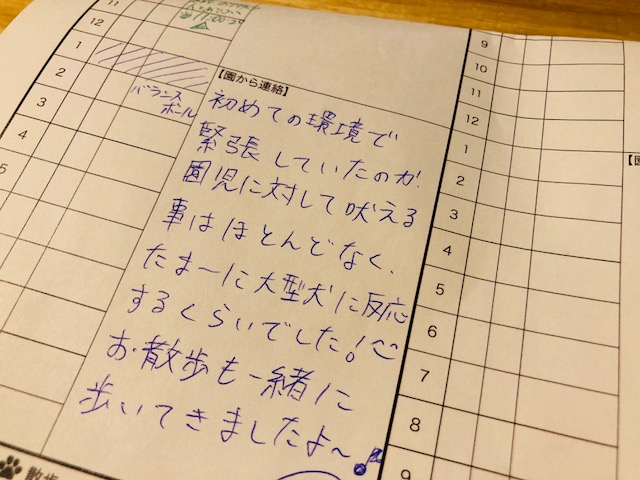 11
12
1
2
3
4
5
11:00
バランス
ボール
【園から連絡】
初めての環境で
緊張していたのか、
園児に対して吠える
事はほとんどなく、
たま〜に大型犬に反応
するくらいでした!
お散歩も一緒に
歩いてきましたよ〜♪
散歩
9
10
11
12
1
2
3
4
5
6
7
8
9